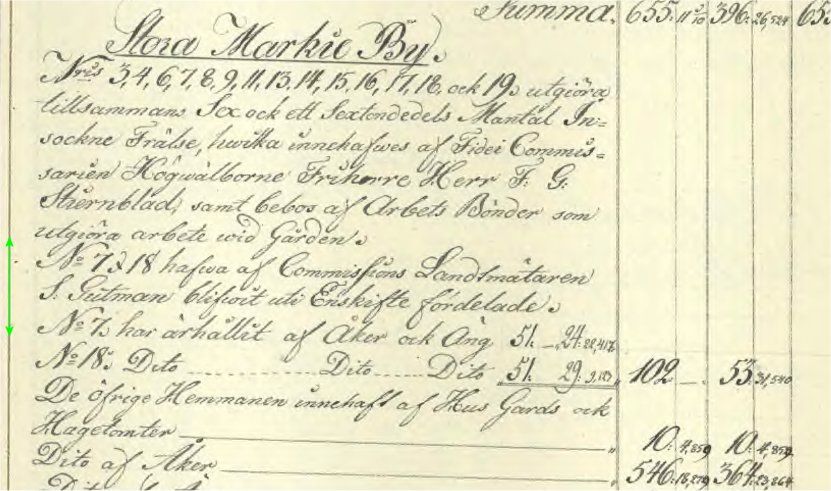 Summa. 655. 11 3/10 396. 26,524 655
Stora Markie By.
N:ris 3, 4, 6, 7, 8, 9, 11, 13, 14, 15, 16, 17, 18, och 19, utgiöra
tillsammans Sex och ett Sextondedels Mantal In=
sockne Frälse, hwilka innehafwes af Fidei Commis=
sarien Högwälborne Friherre Herr F: G:
Stiernblad, samt bebos af Arbets Bönder som
utgiöra arbete wid Gården.
N:o 7 & 18 hafwa af Commissions Landtmätaren
S. Gutman blifwit uti Enskifte fördelade.
N:o 7. har ärhållit af Åker och Äng 51. — 24. 22,417
N:o 18. Dito Dito Dito 51. 29. 9,123 102 — 53. 31,540
De öfrige Hemmanen innehaft af Hus Gårds och
Hagetomter 10. 4,859 10. 4,859
Dito af Åker 546. 18,279 364. 23,864